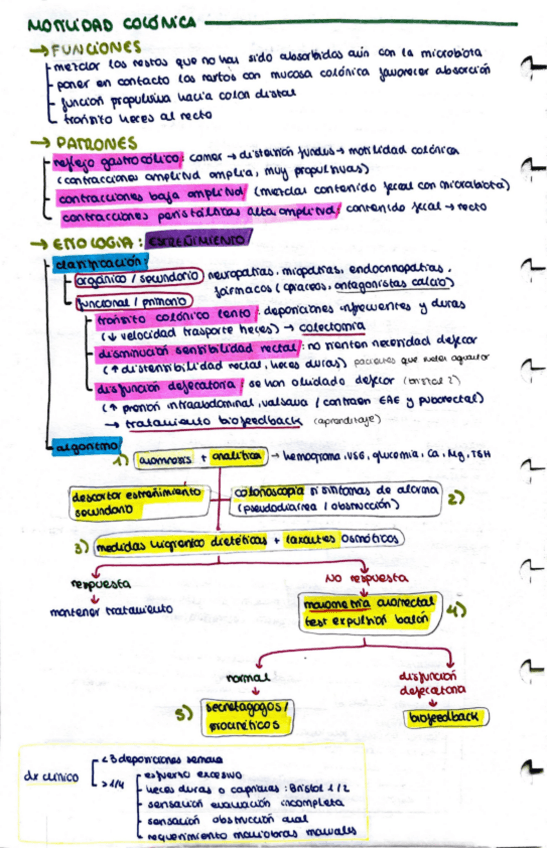 MOTILIDAD COLÓNICA
→ FUNCIONES
mezclar los restos que no han sido absorbidos aún con la microbiota
poner en contacto los restos con mucosa colónica favorecer absorción
función propulsiva hacia colon distal
tránsito heces al recto
→ PATRONES
reflejo gastrocólico: comer → distensión fundus → motilidad colónica
(contracciones amplitud amplia, muy propulsivas)
contracciones baja amplitud (mezclar contenido fecal con microbiota)
contracciones peristálticas alta amplitud: contenido fecal → recto
→ ETIOLOGIA: ESTREÑIMIENTO
clasificación:
orgánico / secundario neuropatías, miopatías, endocrinopatías,
fármacos (opiáceos, antagonistas calcio)
funcional / primario
tránsito colónico lento: deposiciones infrecuentes y duras
(↓ velocidad trasporte heces) → colectomía
disminución sensibilidad rectal: no sienten necesidad defecar
(↑ distensibilidad rectal, heces duras) pacientes que suelen aguantar
disfunción defecatoria: se han olvidado defecar (Bristol 2)
(↑ presión intraabdominal, valsalva / contraen EAE y puborectal)
→ tratamiento biofeedback (aprendizaje)
algoritmo
1) anamnesis + analítica → hemograma, VSG, glucemia, Ca, Mg, TSH
descartar estreñimiento
secundario
colonoscopia si síntomas de alarma
(pseudodiarrea / obstrucción)
2)
3) medidas higiénico dietéticas + laxantes osmóticos
respuesta
No respuesta
mantener tratamiento
manometría anorrectal
test expulsión balón
4)
normal
disfunción
defecatoria
5) secretagogos /
procinéticos
biofeedback
dx clínico
<3 deposiciones semana
>1/4
esfuerzo excesivo
heces duras o caprinas: Bristol 1/2
sensación evacuación incompleta
sensación obstrucción anal
requerimiento maniobras manuales